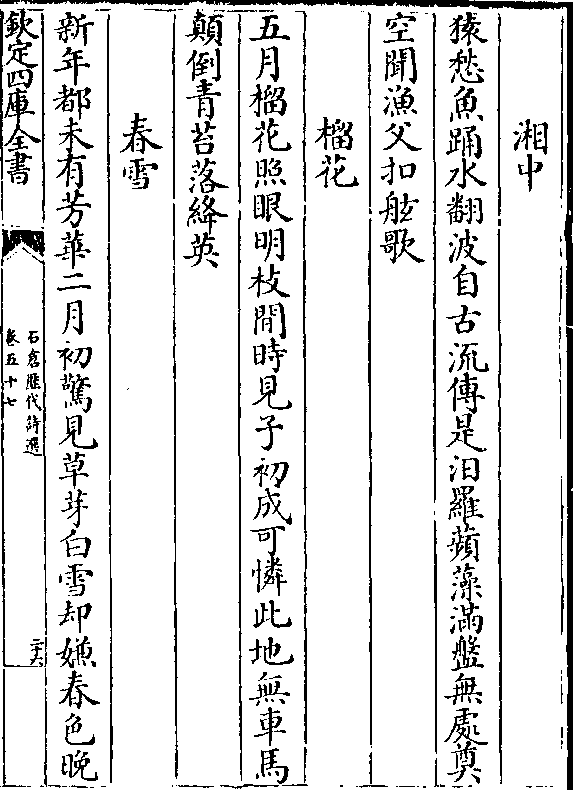 湘中
猿愁魚踊水翻波自古流傳是汨羅蘋藻滿盤無處奠
空聞漁父扣舷歌
榴花
五月榴花照眼明枝間時見子初成可憐此地無車馬
顛倒青苔落絳英
春雪
新年都未有芳華二月初驚見草芽白雪却嫌春色晚
欽定四庫全書
石倉歷代詩選
卷五十七
二十六